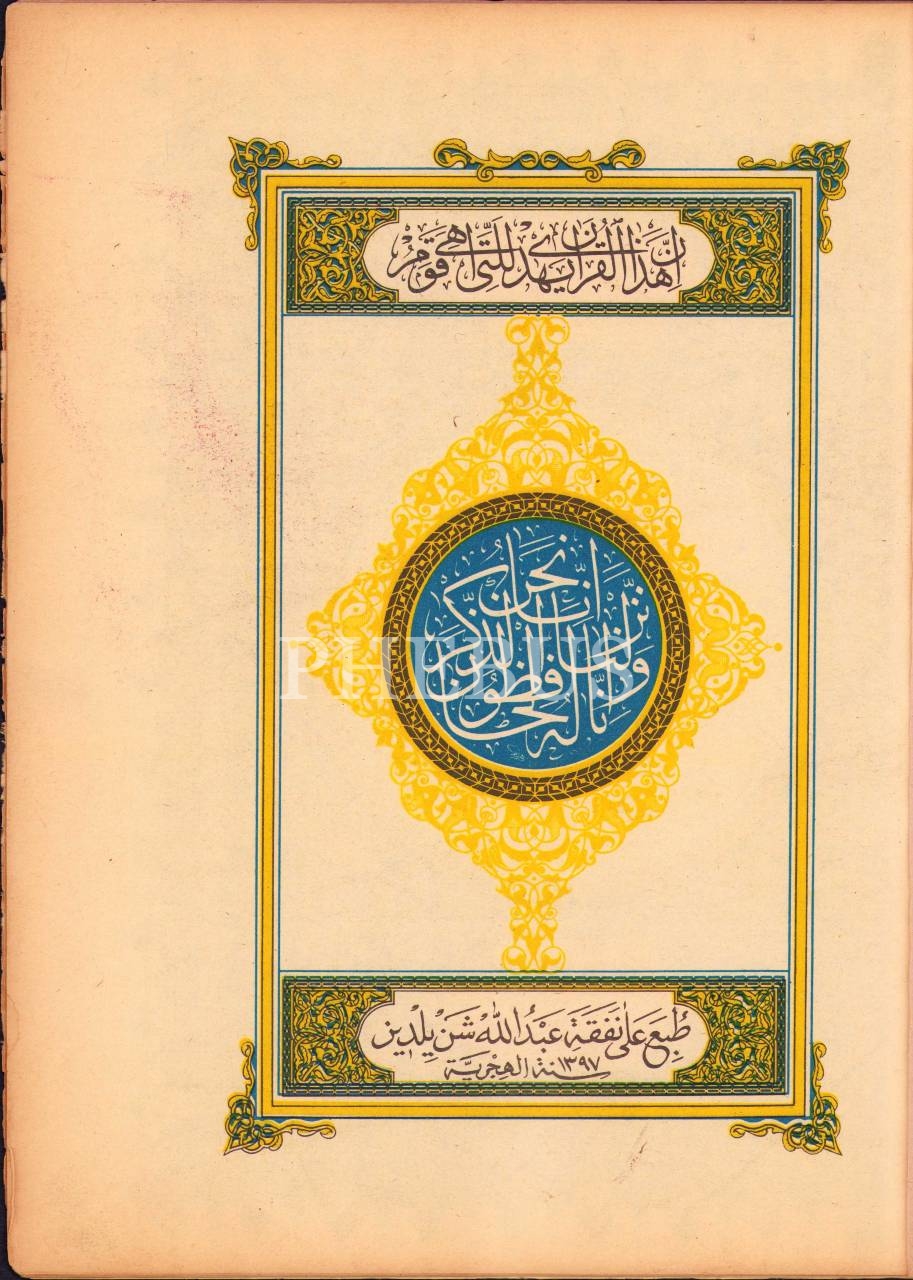 إِنَّ هٰذَا الْقُرْاٰنَ يَهْدِي لِلَّتِي هِيَ أَقْوَمُ
إنا نحن نزلنا الذكر وإنا له لحافظون
PHEBUS
طُبِعَ عَلٰى نَفَقَةِ عَبْدُ اللّٰه شَنْ يِلْدِيز
سنة ١٣٩٧ الهِجْرِيَّة